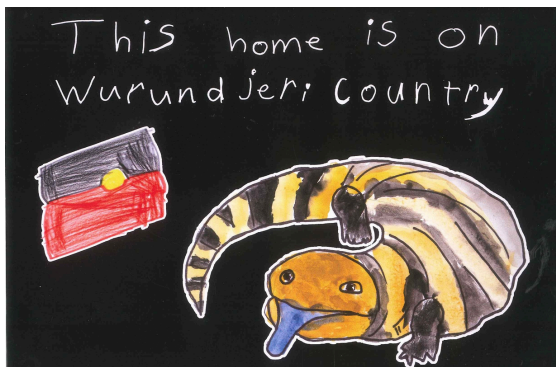 This home is on
Wurundjeri Country